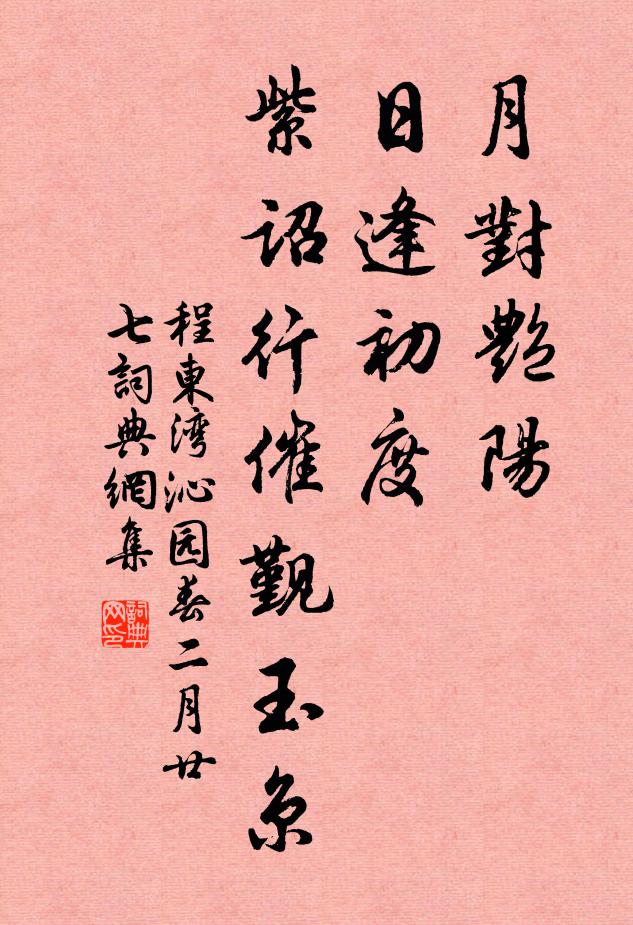 月對艷陽
日逢初度
紫詔行催觀玉京
程東湾沁园春二月廿
七詞典網集
詞典網印